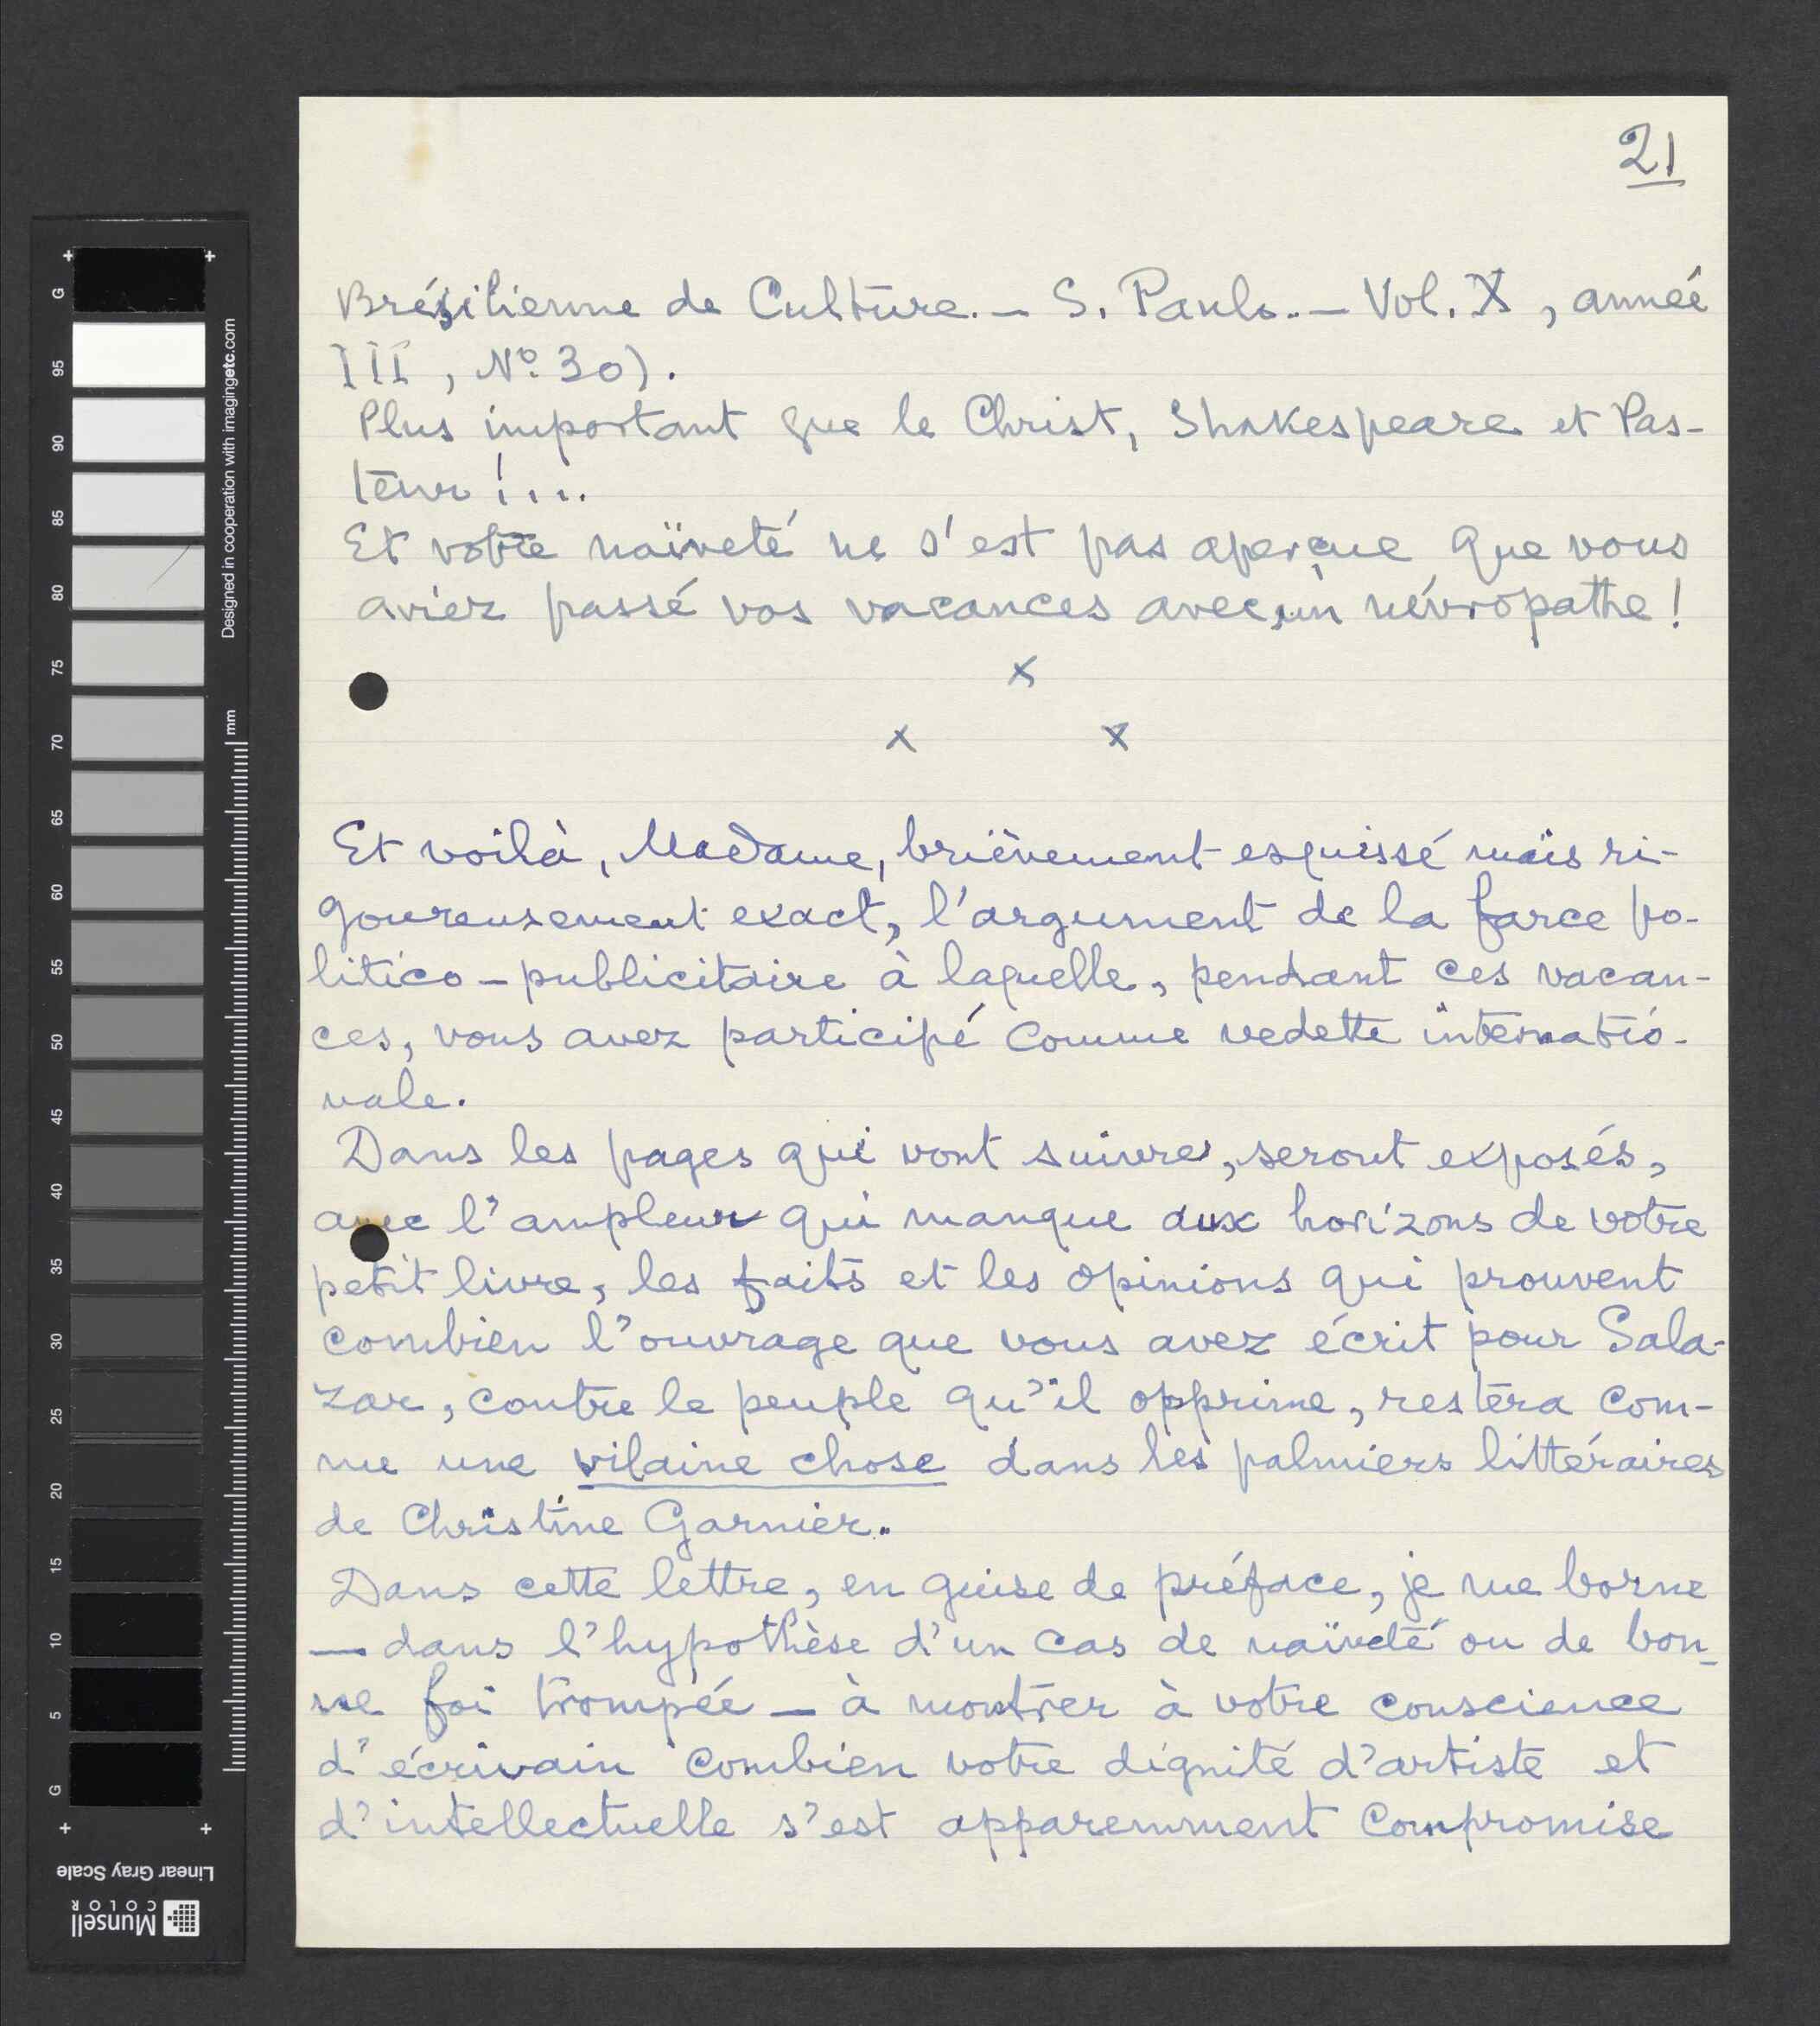 21
Brésilienne de Culture. – S. Paulo. – Vol. X, année
III, Nº 30).
Plus important que le Christ, Shakespeare et Pas-
teur !....
Et votre naïveté ne s'est pas aperçue que vous
aviez passé vos vacances avec un névropathe !
x
x x
Et voilà, Madame, brièvement esquissé mais ri-
goureusement exact, l'argument de la farce po-
litico-publicitaire à laquelle, pendant ces vacan-
ces, vous avez participé comme vedette internatio-
nale.
Dans les pages qui vont suivre, seront exposés,
avec l'ampleur qui manque aux horizons de votre
petit livre, les faits et les opinions qui prouvent
combien l'ouvrage que vous avez écrit pour Sala-
zar, contre le peuple qu'il opprime, restera com-
me une vilaine chose dans les palmiers littéraires
de Christine Garnier.
Dans cette lettre, en guise de préface, je me borne
— dans l'hypothèse d'un cas de naïveté ou de bon-
ne foi trompée — à montrer à votre conscience
d'écrivain combien votre dignité d'artiste et
d'intellectuelle s'est apparemment compromise
G
95
90
85
80
75
70
65
60
55
50
45
40
35
30
25
20
15
10
5
G
Designed in cooperation with imagingetc.com
mm
Linear Gray Scale
Munsell
COLOR